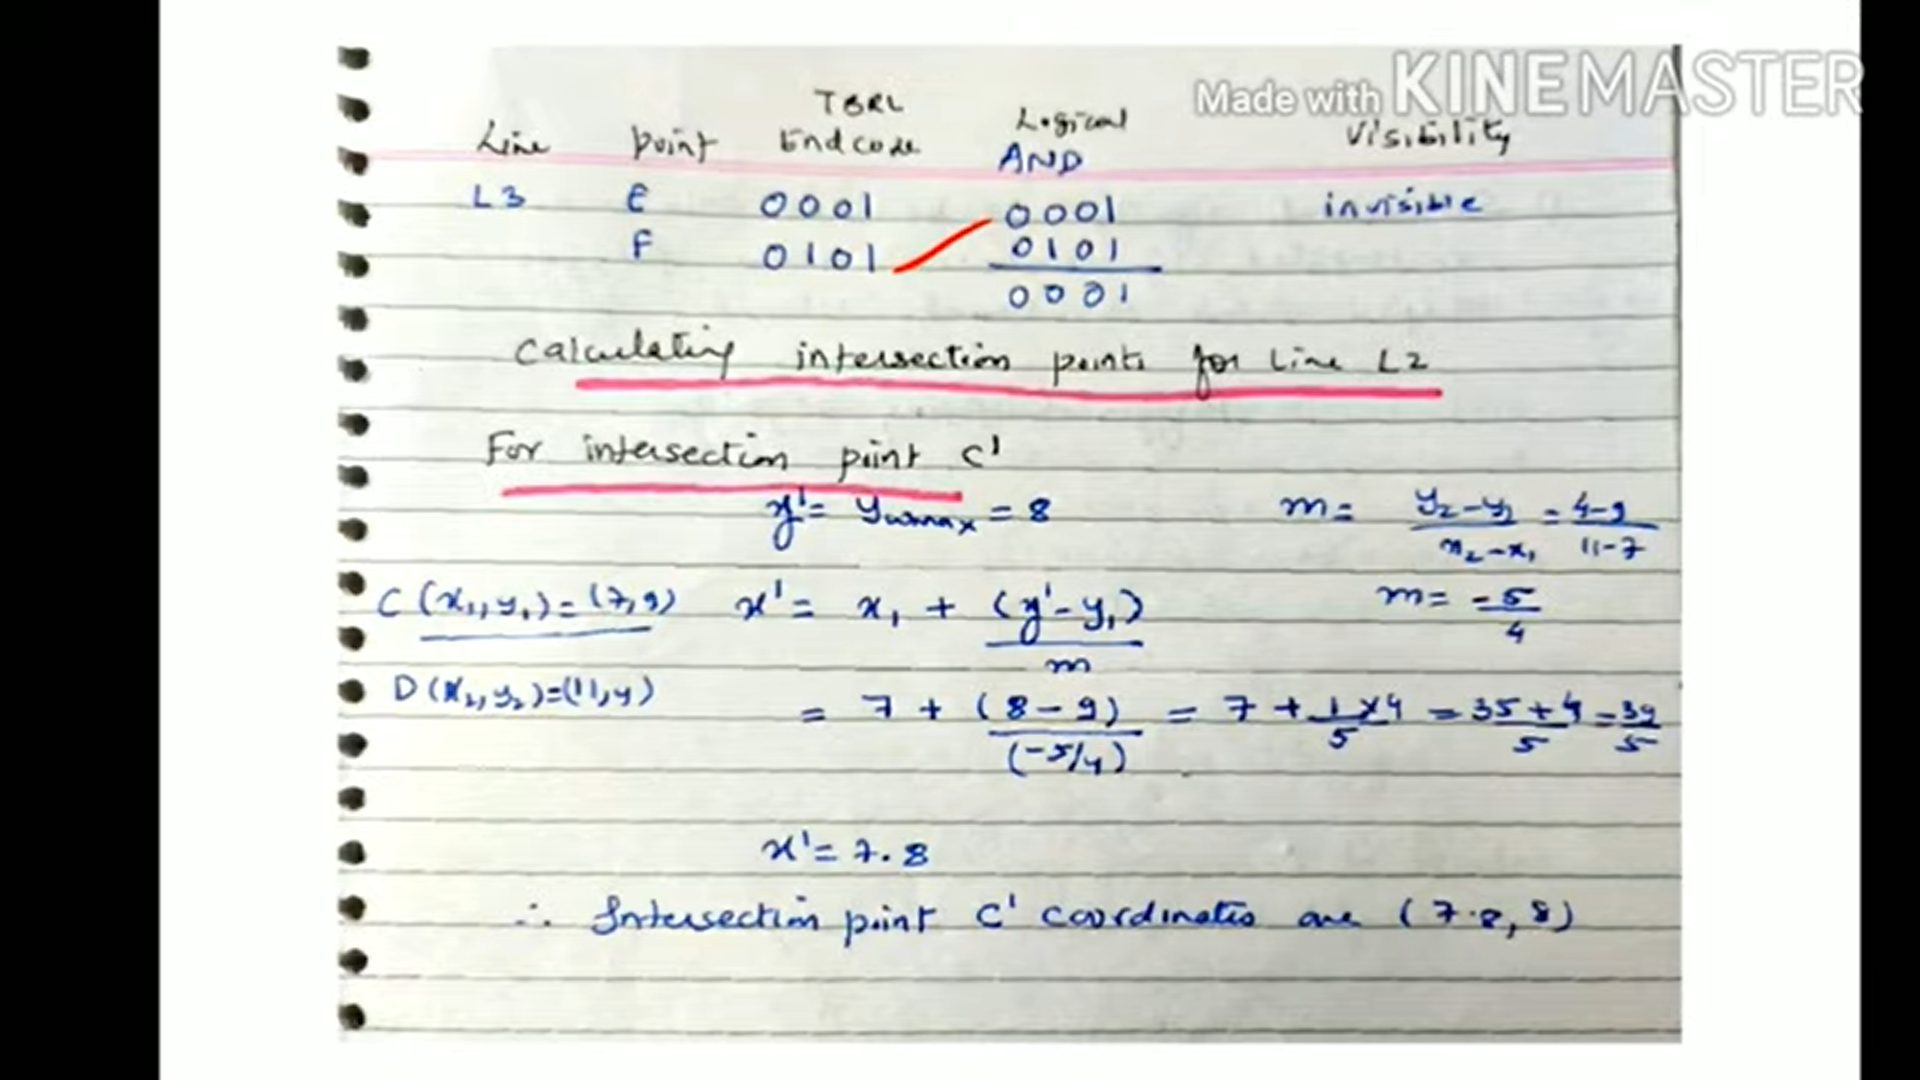 Made with KINEMASTER
Line Point TBRL Endcode Logical AND Visibility
L3 E 0001 0001 invisible
F 0101 0101
0001
Calculating intersection points for Line L2
For intersection point C'
y' = ywmax = 8 m = y2-y1/x2-x1 = 4-9/11-7
C (x1,y1) = (7,9) x' = x1 + (y'-y1)/m m = -5/4
D (x2,y2) = (11,4) = 7 + (8-9)/(-5/4) = 7 + 1×4/5 = 35+4/5 = 39/5
x' = 7.8
∴ Intersection point C' coordinates are (7.8, 8)